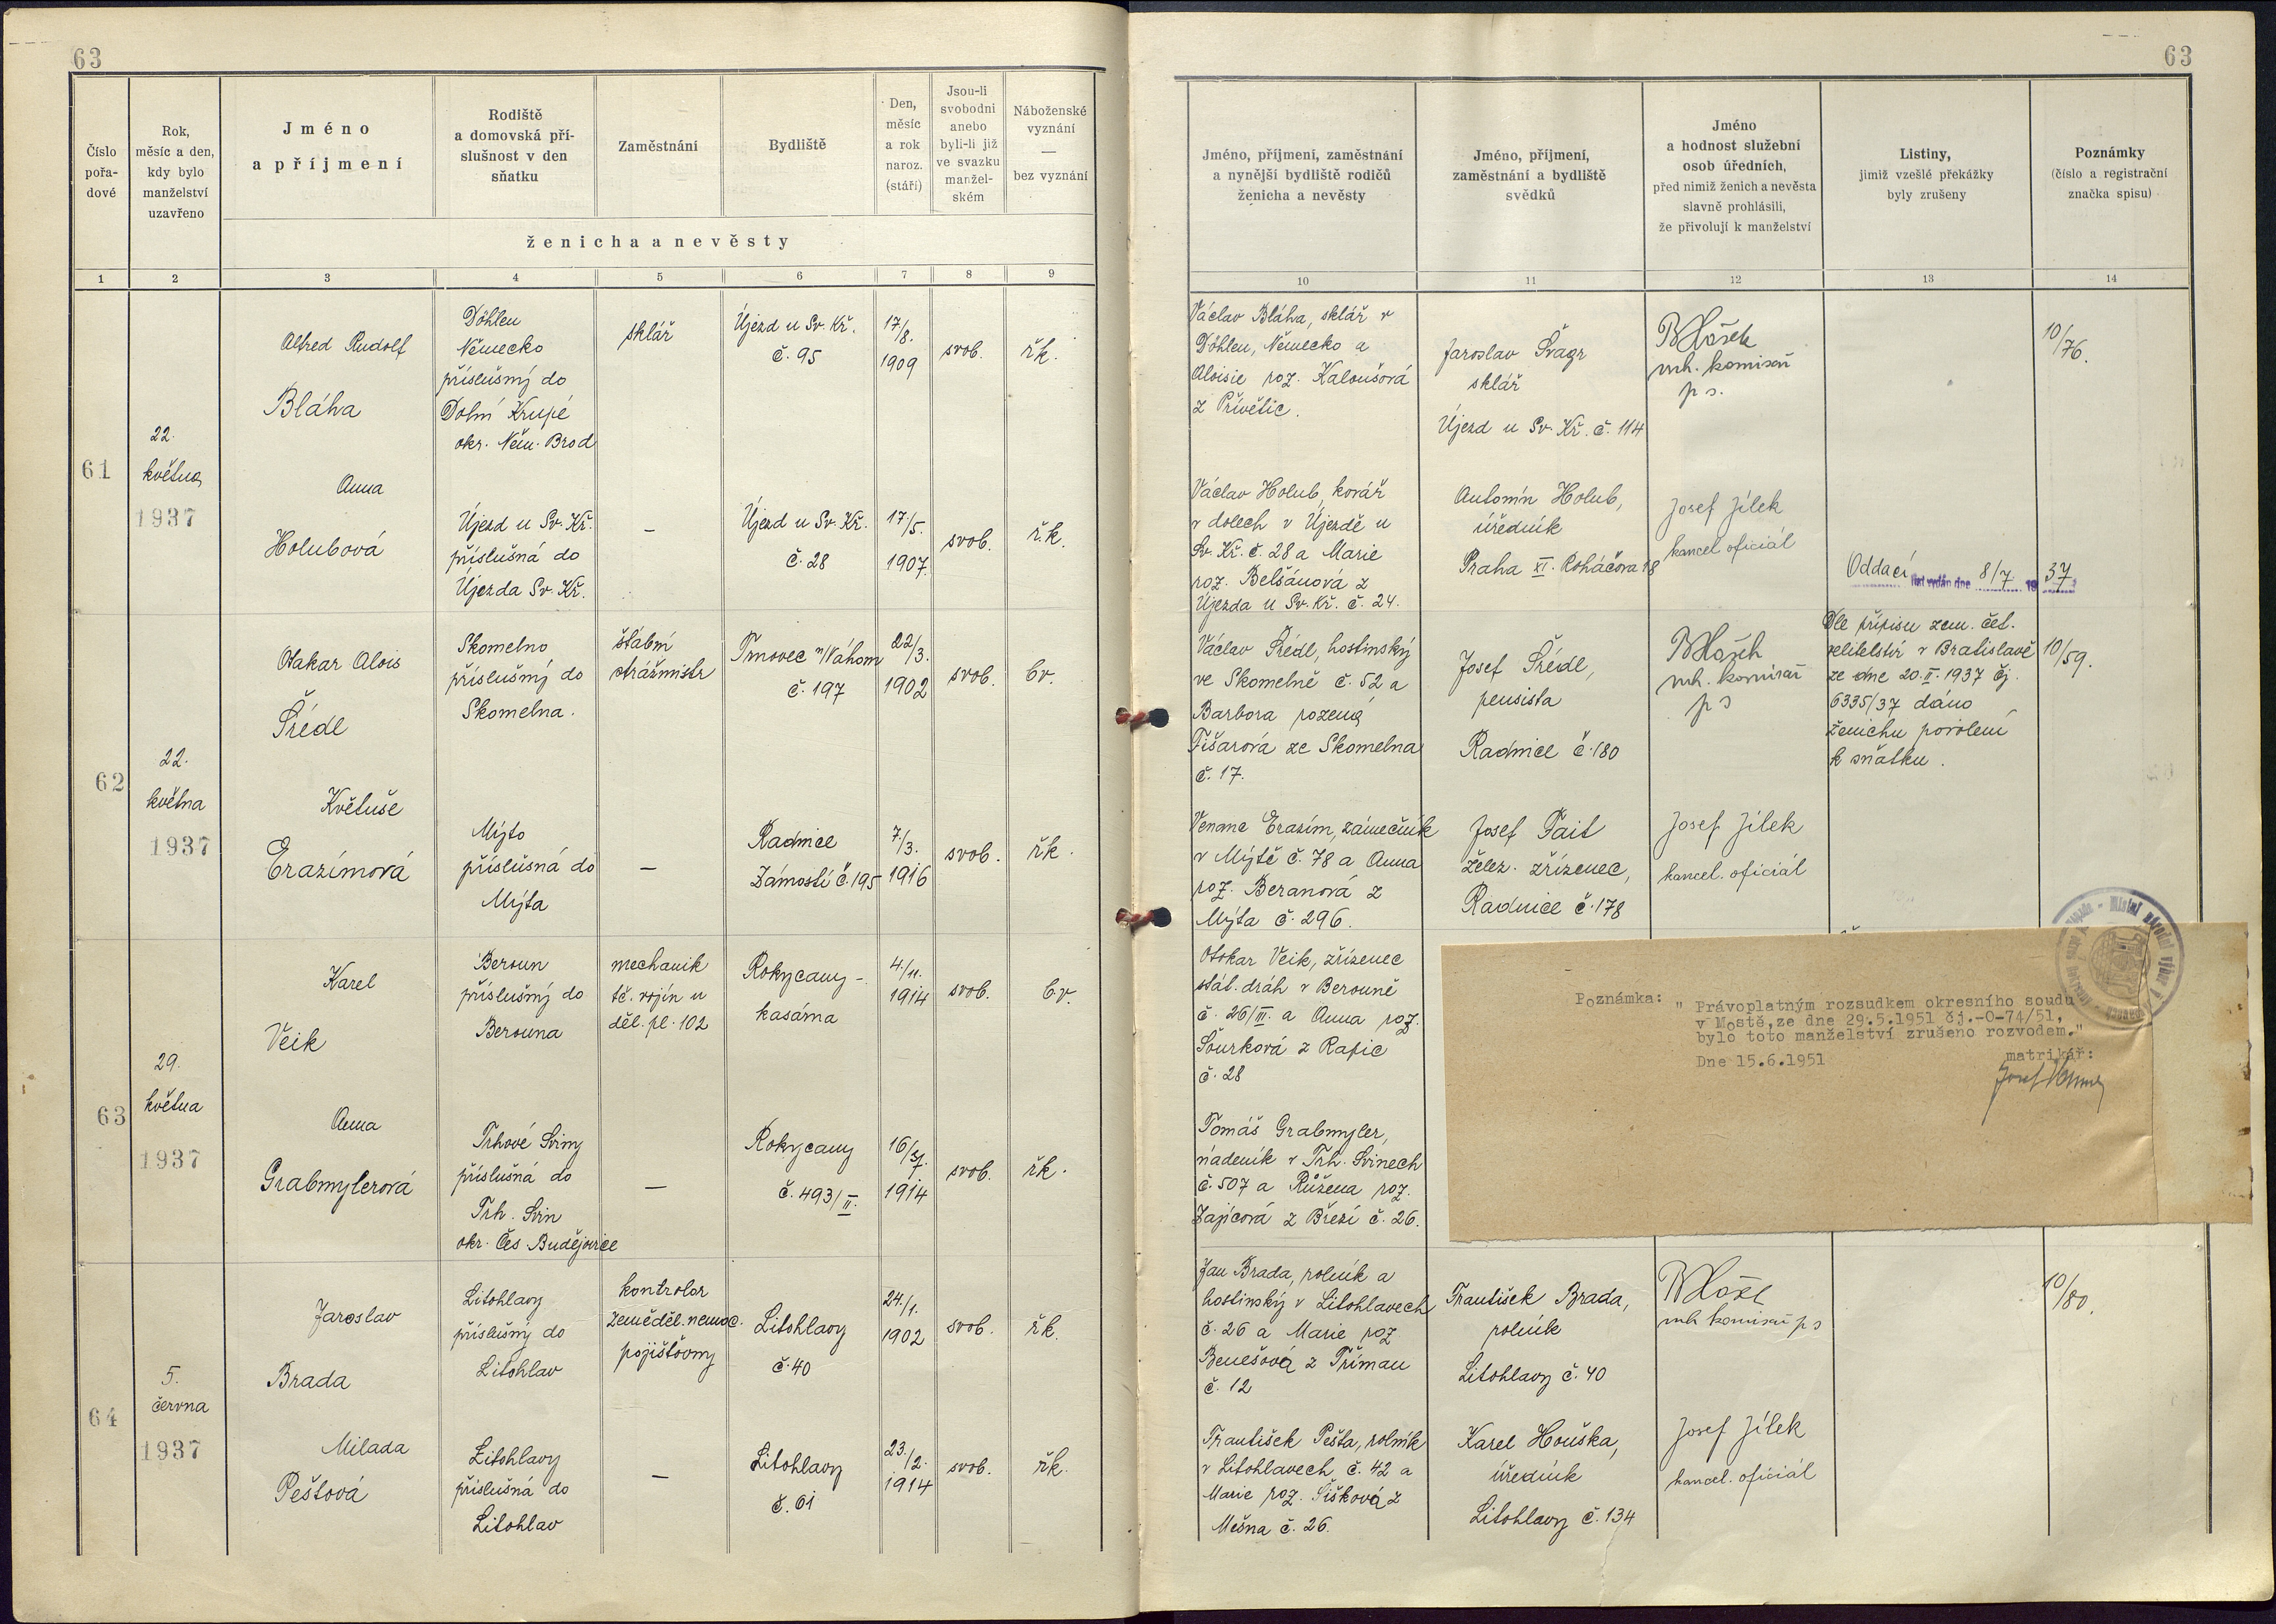 63
63
Číslo pořa-dové
Rok, měsíc a den, kdy bylo manželství uzavřeno
Jméno a příjmení
Rodiště a domovská pří-slušnost v den sňatku
Zaměstnání
Bydliště
Den, měsíc a rok naroz. (stáří)
Jsou-li svobodni anebo byli-li již ve svazku manžel-ském
Náboženské vyznání — bez vyznání
ženicha a nevěsty
1 2 3 4 5 6 7 8 9
Jméno, příjmení, zaměstnání a nynější bydliště rodičů ženicha a nevěsty
Jméno, příjmení, zaměstnání a bydliště svědků
Jméno a hodnost služební osob úředních, před nimiž ženich a nevěsta slavně prohlásili, že přivolují k manželství
Listiny, jimiž vzešlé překážky byly zrušeny
Poznámky (číslo a registrační značka spisu)
10 11 12 13 14
61
22.
května
1937
Alfred Rudolf
Bláha
Döhlen
Německo
příslušný do
Dolní Krupé
okr. Něm. Brod
sklář
Újezd u Sv. Kř.
č. 95
17/8.
1909
svob.
řk.
Václav Bláha, sklář v
Döhlen, Německo a
Aloisie roz. Kaloušová
z Přívětic.
Jaroslav Švagr
sklář
Újezd u Sv. Kř. č. 114
mh. komisař
p s.
10/76.
Anna
Holubová
Újezd u Sv. Kř.
příslušná do
Újezda Sv. Kř.
—
Újezd u Sv. Kř.
č. 28
17/5.
1907.
svob.
ř.k.
Václav Holub, kovář
v dolech v Újezdě u
Sv. Kř. č. 28 a Marie
roz. Belšánová z
Újezda u Sv. Kř. č. 24.
Antonín Holub,
úředník
Praha XI. Roháčova 18
Josef Jílek
kancel oficiál
Oddací list vydán dne 8/7. 1937
62
22.
května
1937
Otakar Alois
Šrédl
Skomelno
příslušný do
Skomelna.
štábní
strážmistr
Trnovec n/Váhom
č. 197
22/3.
1902
svob.
bv.
Václav Šrédl, hostinský
ve Skomelně č. 52 a
Barbora rozená
Fišarová ze Skomelna
č. 17.
Josef Šrédl,
pensista
Radnice č. 180
mh. komisař
p s
Dle přípisu zem. čet.
velitelství v Bratislavě
ze dne 20.II.1937 čj.
6335/37 dáno
ženichu povolení
k sňatku.
10/59.
Květuše
Erazímová
Mýto
příslušná do
Mýta
—
Radnice
Zámostí č. 195
7/3.
1916
svob.
řk.
Erazím, zámečník
v Mýtě č. 78 a Anna
roz. Beranová z
Mýta č. 296.
Josef Pait
želez. zřízenec,
Radnice č. 178
Josef Jílek
kancel. oficiál
63
29.
května
1937
Karel
Veik
Beroun
příslušný do
Berouna
mechanik
tč. vojín u
děl. pl. 102
Rokycany -
kasárna
4./11.
1914
svob.
bv.
Otokar Veik, zřízenec
stát. drah v Berouně
č. 26/III. a Anna roz.
Šourková z Rapic
č. 28
Poznámka: " Právoplatným rozsudkem okresního soudu
v Mostě, ze dne 29.5.1951 čj.-O-74/51,
bylo toto manželství zrušeno rozvodem."
Dne 15.6.1951 matrikář:
Anna
Grabmylerová
Trhové Sviny
příslušná do
Trh. Svin
okr. Čes. Budějovice
—
Rokycany
č. 493/II.
16/7.
1914
svob.
řk.
Tomáš Grabmyler,
nádeník v Trh. Svinech
č. 507 a Růžena roz.
Zajícová z Březí č. 26.
64
5.
června
1937
Jaroslav
Brada
Litohlavy
příslušný do
Litohlav
kontrolor
zeměděl. nemoc.
pojišťovny
Litohlavy
č. 40
24./1.
1902
svob.
řk.
Jan Brada, rolník a
hostinský v Litohlavech
č. 26 a Marie roz
Benešová z Příman
č. 12
František Brada,
rolník
Litohlavy č. 40
mh komisař p s
10/80.
Milada
Peštová
Litohlavy
příslušná do
Litohlav
—
Litohlavy
č. 61
23./2.
1914
svob.
řk.
František Pešta, rolník
v Litohlavech č. 42 a
Marie roz. Šišková z
Mešna č. 26.
Karel Houška,
úředník
Litohlavy č. 134
Josef Jílek
kancel. oficiál